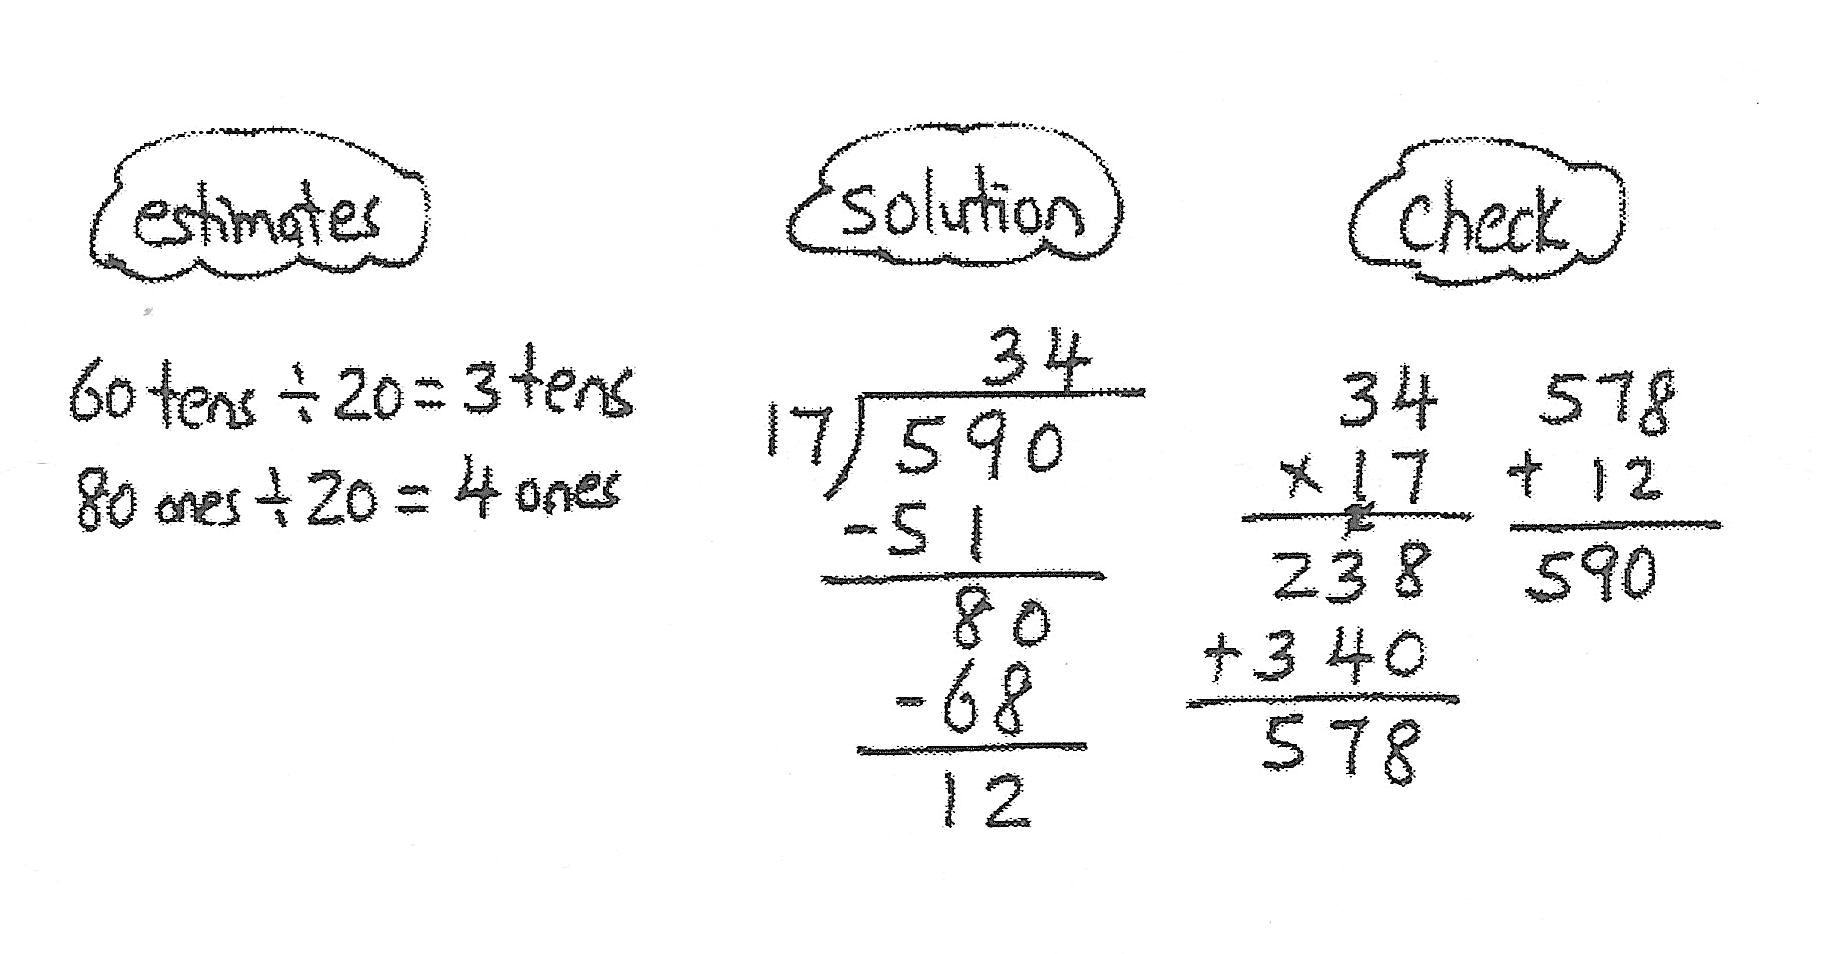 estimates
60 tens ÷ 20 = 3 tens
80 ones ÷ 20 = 4 ones
solution
34
17) 590
-51
80
-68
12
check
34
x 17
2
238
+ 340
578
578
+ 12
590